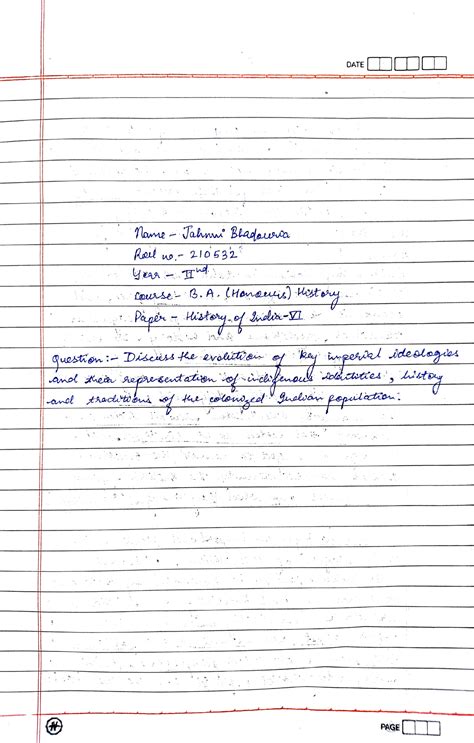 DATE
Name - Jahnvi Bhadouria
Roll no. - 210532
Year - IInd
Course - B.A. (Honours) History
Paper - History of India-VI
Question:- Discuss the evolution of key imperial ideologies
and their representation of indigenous identities, history
and traditions of the colonized Indian population.
PAGE